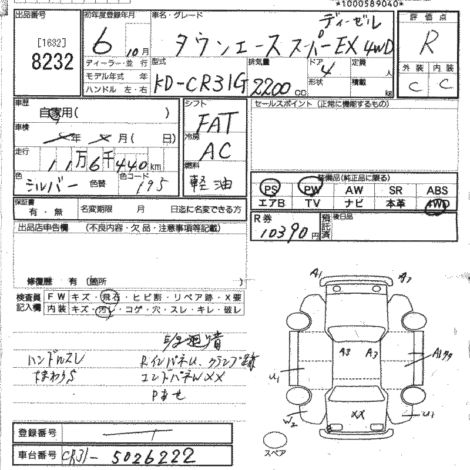 *1000589040*
出品番号
[1632]
8232
初年度登録年月
6年10月
ディーラー・並行
モデル年式 年
ハンドル 左・右
車名・グレード
ディーゼル
タウンエース スーパーEX 4WD
型式
KD-CR31G
排気量
2200 CC
ドア
4
形状
定員
人
積載
kg
評価点
R
外装 内装
C C
車歴
自家用( )
車検
年 月 日
走行
11万6千440km
色
シルバー
色替
色コード
195
シフト
FAT
冷房
AC
燃料
軽油
セールスポイント(正常に機能するもの)
装備品(純正品に限る)
PS PW AW SR ABS
エアB TV ナビ 本革 4WD
保証書
有・無
名変期限 年 月 日迄に名変できる方
R券
10390円
預託済
後日品
出品店申告欄 (不良内容・欠品・注意事項等記載)
修復歴 有 (箇所 )
検査員記入欄
FW キズ・飛石・ヒビ割・リペア跡・X要
内装 キズ・汚レ・コゲ・穴・スレ・キレ・破レ
ハンドルスレ
Pあせ
A1 A2
A3 A3
U1
W2
XX
U1
スペア
登録番号
車台番号 CR31-5026222